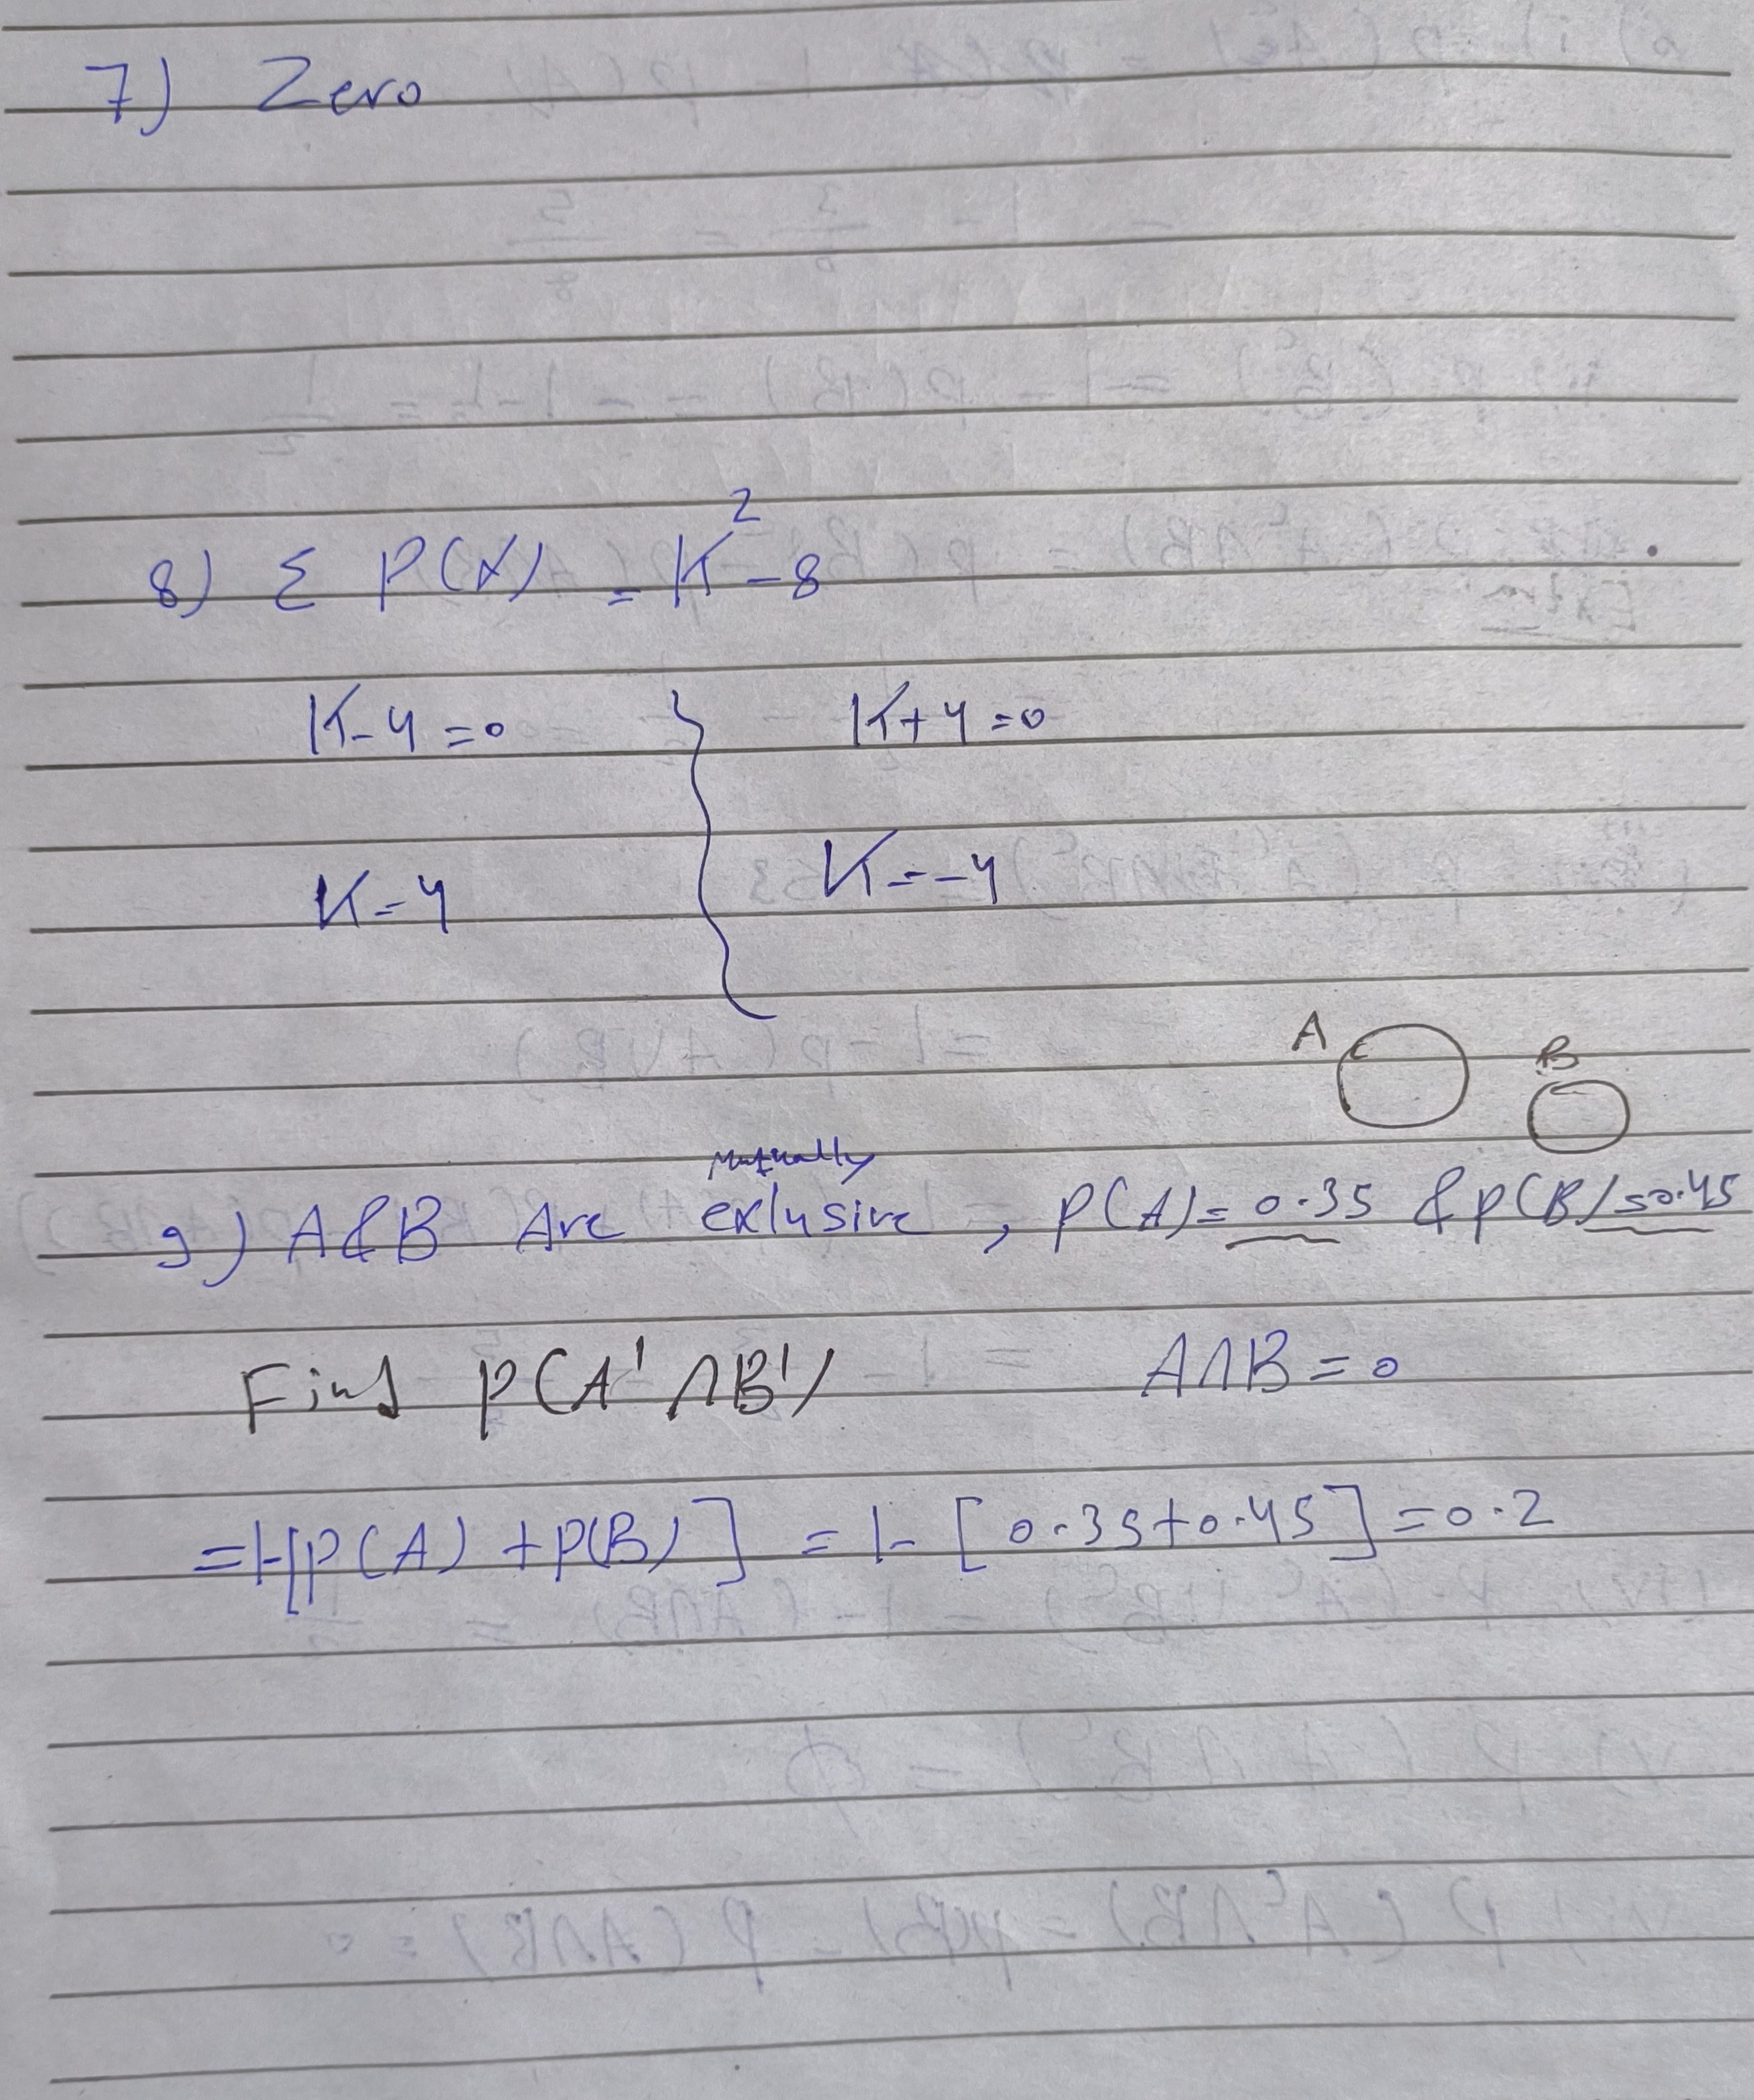 7) Zero
8) Σ P(X) = K² - 8
K-4=0 K+4=0
K=4 K=-4
A B
Mutually
9) A&B Are exlusive, P(A)=0.35 & P(B)=0.45
Find P(A' ∩B') A∩B=0
=1-[P(A)+P(B)] = 1-[0.35+0.45]=0.2